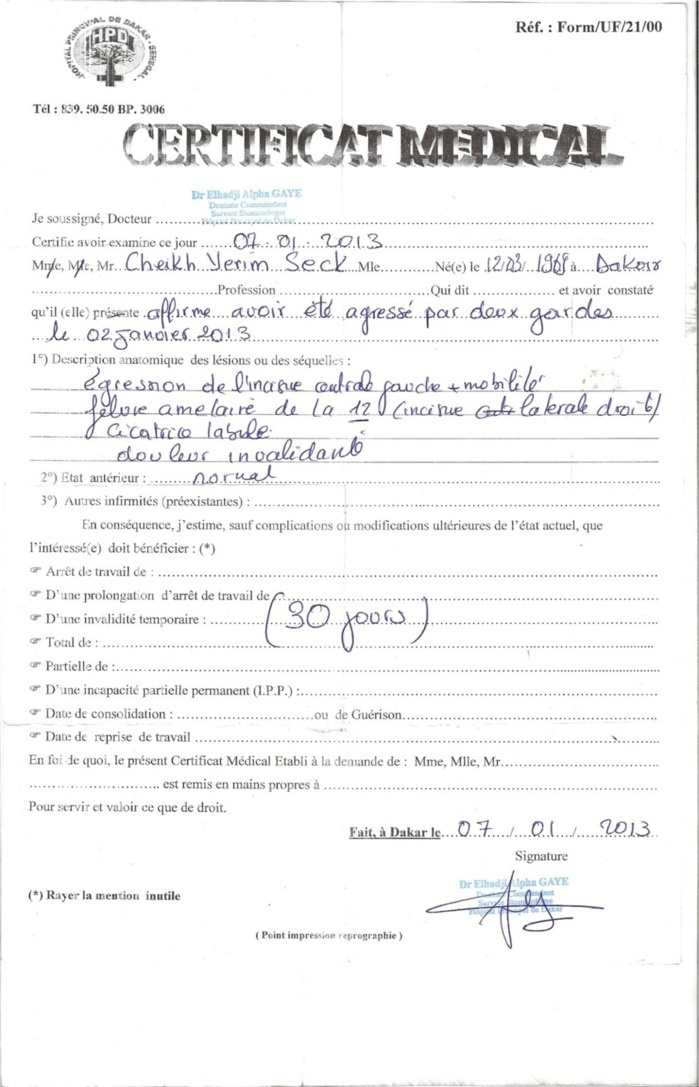 HOPITAL PRINCIPAL DE DAKAR - SENEGAL
HPD
Réf. : Form/UF/21/00
Tél : 839. 50.50 BP. 3006
CERTIFICAT MEDICAL
Dr Elhadji Alpha GAYE
Dentiste Commandant
Service Stomatologie
Hôpital Principal de Dakar
Je soussigné, Docteur
Certifie avoir examine ce jour 07 01 2013
Mme, Mlle, Mr. Cheikh Yerim Seck Mle Né(e) le 12/03/1969 à Dakar
Profession Qui dit et avoir constaté
qu'il (elle) présente affirme avoir été agressé par deux gardes
le 02 janvier 2013
1°) Description anatomique des lésions ou des séquelles :
égression de l'incisive centrale gauche + mobilité
fêlure amelaire de la 12 (incisive laterale droite)
cicatrice labiale
douleur invalidante
2°) Etat antérieur : normal
3°) Autres infirmités (préexistantes) :
En conséquence, j'estime, sauf complications ou modifications ultérieures de l'état actuel, que
l'intéressé(e) doit bénéficier : (*)
☞ Arrêt de travail de :
☞ D'une prolongation d'arrêt de travail de
☞ D'une invalidité temporaire : (30 jours)
☞ Total de :
☞ Partielle de :
☞ D'une incapacité partielle permanent (I.P.P.) :
☞ Date de consolidation : ou de Guérison
☞ Date de reprise de travail
En foi de quoi, le présent Certificat Médical Etabli à la demande de : Mme, Mlle, Mr
est remis en mains propres à
Pour servir et valoir ce que de droit.
Fait, à Dakar le 07 / 01 / 2013
Signature
Dr Elhadji Alpha GAYE
Dentiste Commandant
Service Stomatologie
Hôpital Principal de Dakar
(*) Rayer la mention inutile
( Point impression reprographie )